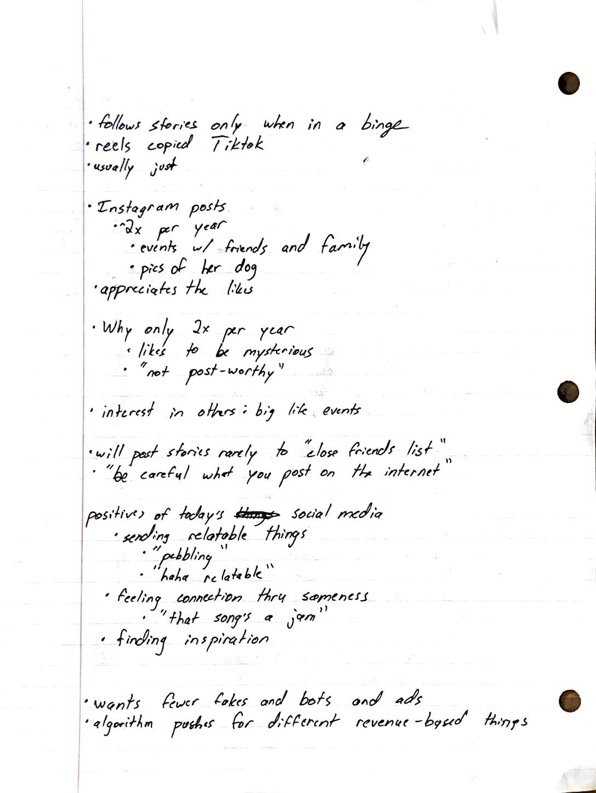 · follows stories only when in a binge
· reels copied Tiktok
· usually just
· Instagram posts
· ~2x per year
· events w/ friends and family
· pics of her dog
· appreciates the likes
· Why only 2x per year
· likes to be mysterious
· "not post-worthy"
· interest in others: big life events
· will post stories rarely to "close friends list"
· "be careful what you post on the internet"
positives of today's things social media
· sending relatable things
· "pebbling"
· "haha relatable"
· feeling connection thru sameness
· "that song's a jam"
· finding inspiration
· wants fewer fakes and bots and ads
· algorithm pushes for different revenue-based things